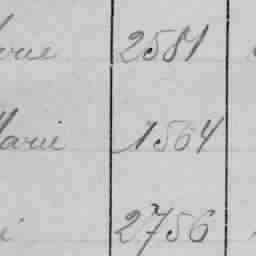 2581
Marie 1564
2756